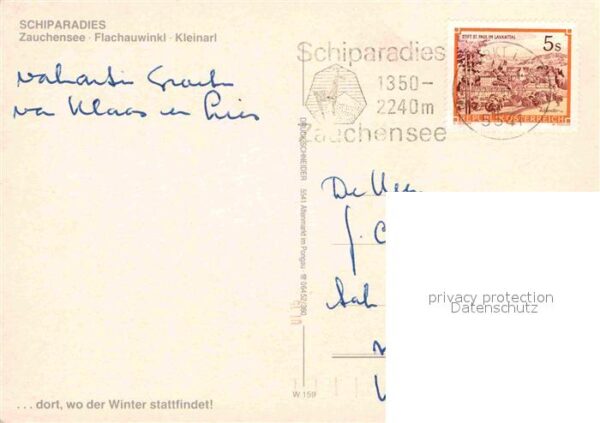 SCHIPARADIES
Zauchensee · Flachauwinkl · Kleinarl
van Klaas en
Schiparadies
1350–
2240m
Zauchensee
STIFT ST. PAUL IM LAVANTTAL
5s
REPUBLIK ÖSTERREICH
5541
DRUCK SCHNEIDER 5541 Altenmarkt im Pongau · ☎ 06452/360
De
J. C
privacy protection
Datenschutz
W 159
. . . dort, wo der Winter stattfindet!